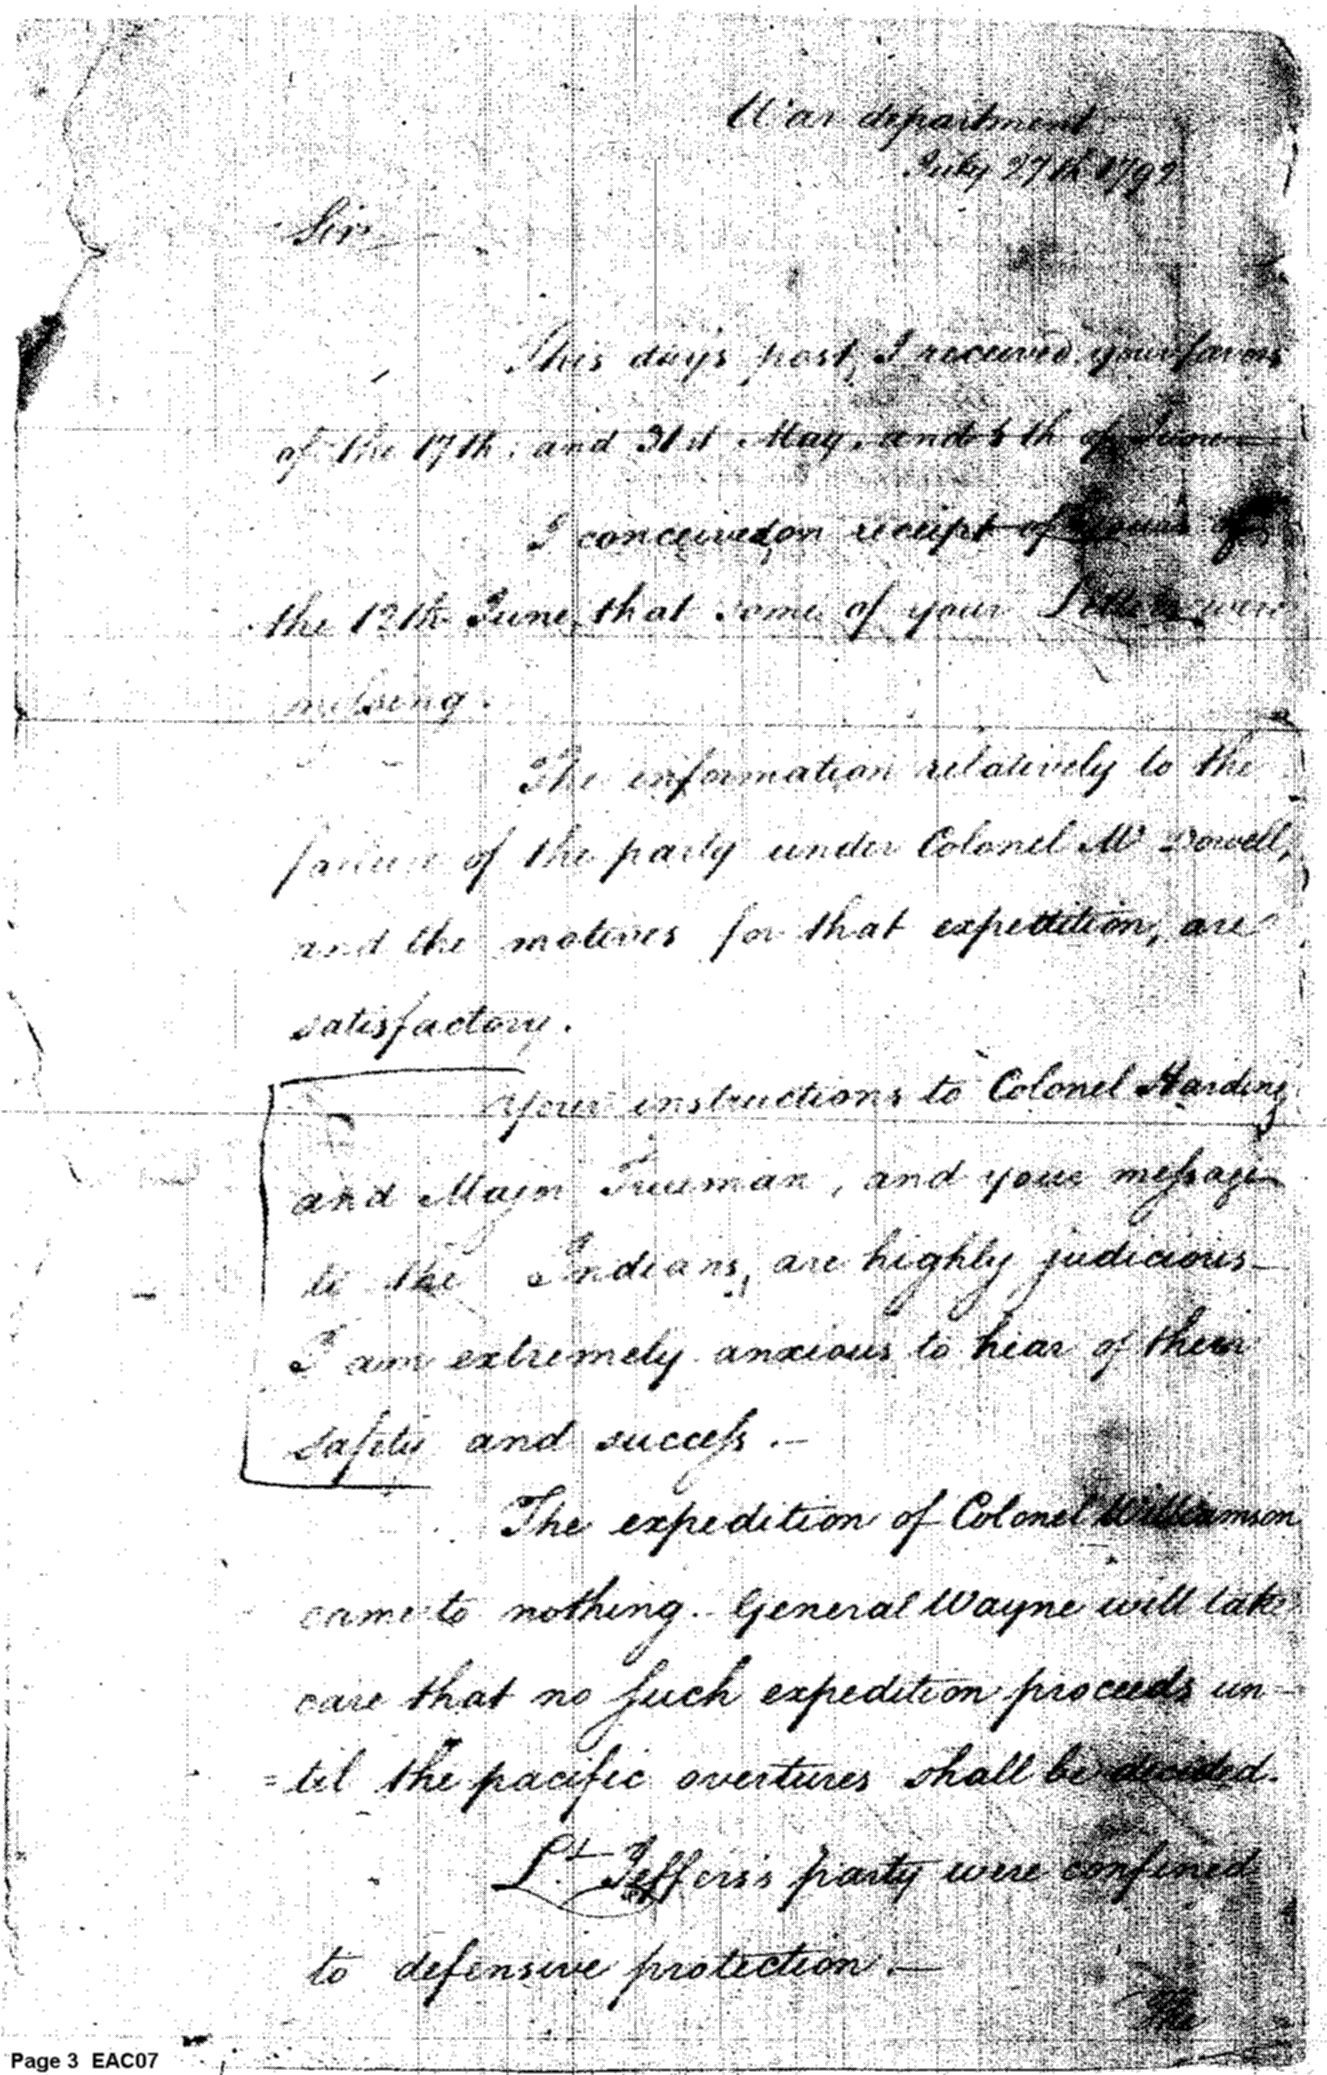 War department
July 27th 1792
Sir
This day's post, I received your favors
of the 17th. and 31st May, and 5th of June
I conceived, on receipt of yours of
the 12th June, that some of your Letters were
missing.
The information relatively to the
failure of the party under Colonel Mc Dowell,
and the motives for that expedition, are
satisfactory.
Your instructions to Colonel Harding
and Major Trueman, and your messages
to the Indians, are highly judicious—
I am extremely anxious to hear of their
safety and success.—
The expedition of Colonel Williamson
came to nothing. General Wayne will take
care that no such expedition proceeds un-
=til the pacific overtures shall be decided.
Lt. Jeffers's party were confined
to defensive protection.—
The
Page 3 EAC07